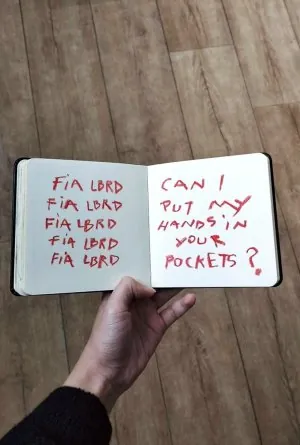 FiA LBRD
FiA LBRD
FiA LBRD
FiA LBRD
FiA LBRD
CAN I
PUT MY
HANDS iN
YOUR
POCKETS?